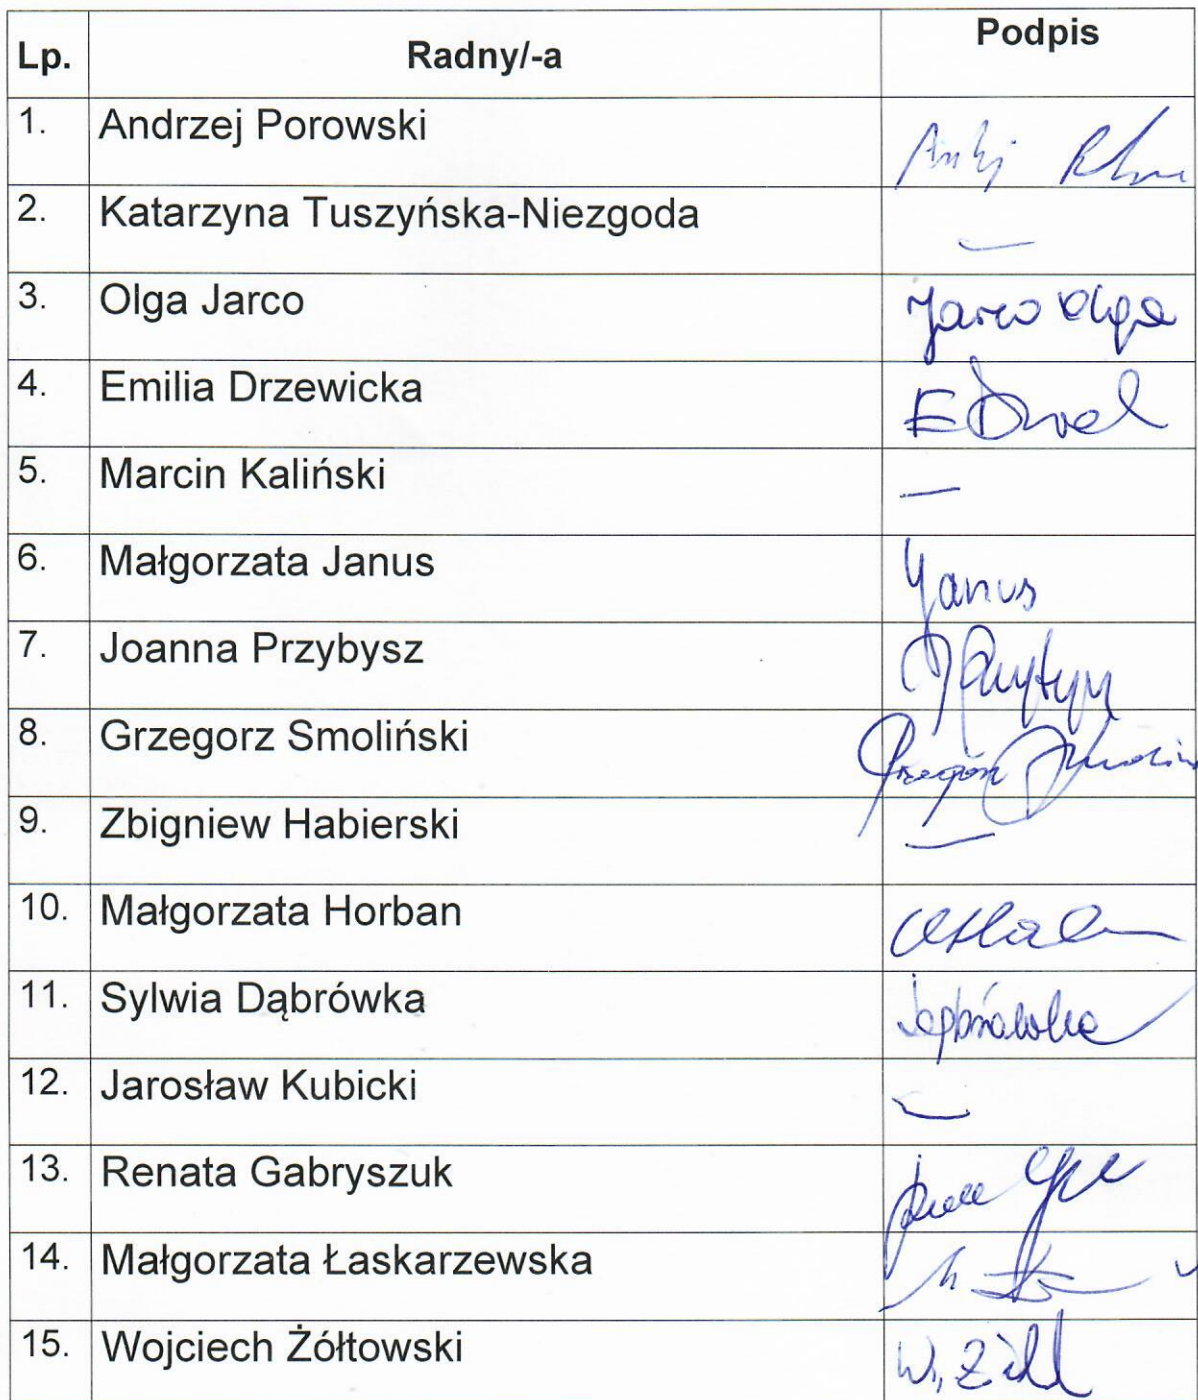 Lp. Radny/-a Podpis
1. Andrzej Porowski
2. Katarzyna Tuszyńska-Niezgoda —
3. Olga Jarco Jarco Olga
4. Emilia Drzewicka
5. Marcin Kaliński —
6. Małgorzata Janus Janus
7. Joanna Przybysz
8. Grzegorz Smoliński Grzegorz
9. Zbigniew Habierski —
10. Małgorzata Horban
11. Sylwia Dąbrówka
12. Jarosław Kubicki —
13. Renata Gabryszuk
14. Małgorzata Łaskarzewska
15. Wojciech Żółtowski